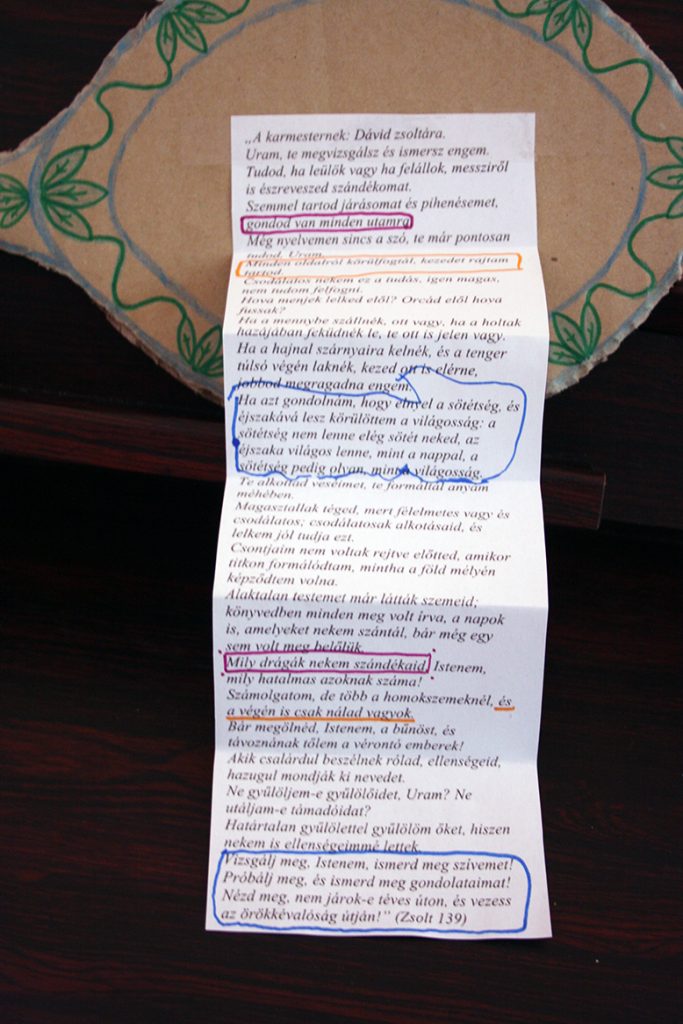 „A karmesternek: Dávid zsoltára.
Uram, te megvizsgálsz és ismersz engem.
Tudod, ha leülök vagy ha felállok, messziről
is észreveszed szándékomat.
Szemmel tartod járásomat és pihenésemet,
gondod van minden utamra
Még nyelvemen sincs a szó, te már pontosan
tudod, Uram.
Minden oldalról körülfogtál, kezedet rajtam
tartod.
Csodálatos nekem ez a tudás, igen magas,
nem tudom felfogni.
Hova menjek lelked elől? Orcád elől hova
fussak?
Ha a mennybe szállnék, ott vagy, ha a holtak
hazájában feküdnék le, te ott is jelen vagy.
Ha a hajnal szárnyaira kelnék, és a tenger
túlsó végén laknék, kezed ott is elérne,
jobbod megragadna engem.
Ha azt gondolnám, hogy elnyel a sötétség, és
éjszakává lesz körülöttem a világosság: a
sötétség nem lenne elég sötét neked, az
éjszaka világos lenne, mint a nappal, a
sötétség pedig olyan, mint a világosság.
Te alkottad veséimet, te formáltál anyám
méhében.
Magasztallak téged, mert félelmetes vagy és
csodálatos; csodálatosak alkotásaid, és
lelkem jól tudja ezt.
Csontjaim nem voltak rejtve előtted, amikor
titkon formálódtam, mintha a föld mélyén
képződtem volna.
Alaktalan testemet már látták szemeid;
könyvedben minden meg volt írva, a napok
is, amelyeket nekem szántál, bár még egy
sem volt meg belőlük.
Mily drágák nekem szándékaid, Istenem,
mily hatalmas azoknak száma!
Számolgatom, de több a homokszemeknél, és
a végén is csak nálad vagyok.
Bár megölnéd, Istenem, a bűnöst, és
távoznának tőlem a vérontó emberek!
Akik csalárdul beszélnek rólad, ellenségeid,
hazugul mondják ki nevedet.
Ne gyűlöljem-e gyűlölőidet, Uram? Ne
utáljam-e támadóidat?
Határtalan gyűlölettel gyűlölöm őket, hiszen
nekem is ellenségeimmé lettek.
Vizsgálj meg, Istenem, ismerd meg szívemet!
Próbálj meg, és ismerd meg gondolataimat!
Nézd meg, nem járok-e téves úton, és vezess
az örökkévalóság útján!” (Zsolt 139)